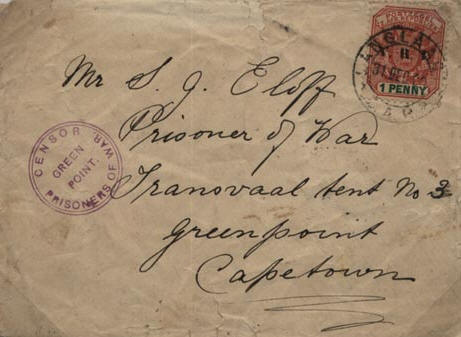 Mr S. J. Eloff
Prisoner of War
Transvaal tent No 3
Greenpoint
Capetown
CENSOR
PRISONERS OF WAR.
GREEN
POINT.
1 PENNY